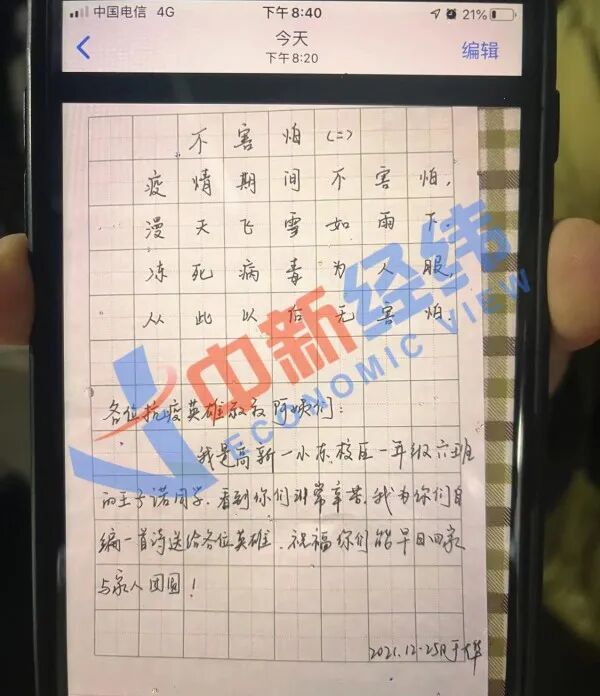 中国电信 4G 下午8:40 21%
今天
下午8:20
编辑
不害怕(二)
疫情期间不害怕,
漫天飞雪如雨下
冻死病毒为人眼,
从此以后无害怕.
中新经纬
ECONOMIC VIEW
各位抗疫英雄叔叔阿姨们:
我是高新一小东校区一年级六班
的王子诺同学.看到你们非常辛苦.我为你们自
编一首诗送给各位英雄.祝福你们能早日回家
与家人团圆!
2021.12.25日于